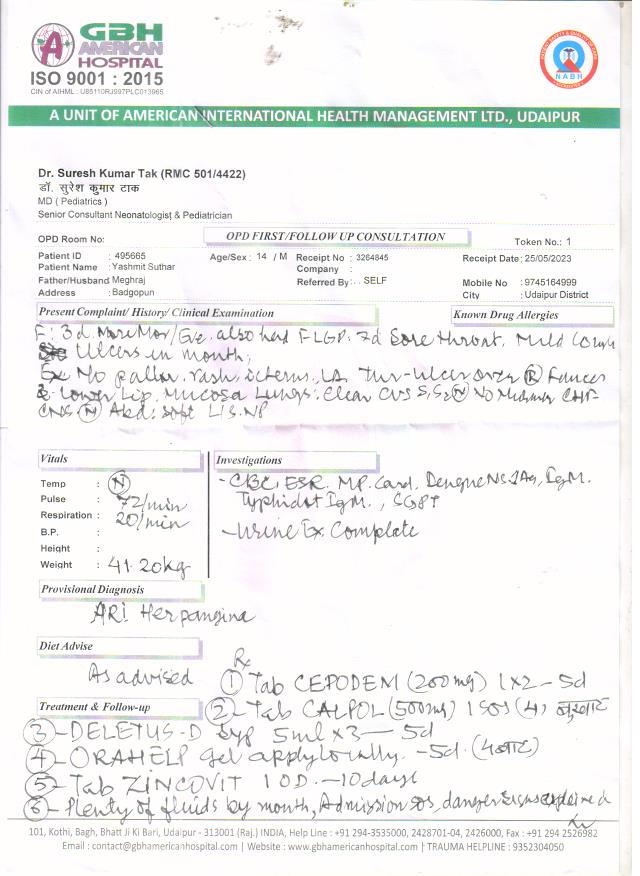 GBH
AMERICAN
HOSPITAL
ISO 9001 : 2015
CIN of AIHML : U85110RJ997PLC013965
NABH
A UNIT OF AMERICAN INTERNATIONAL HEALTH MANAGEMENT LTD., UDAIPUR
Dr. Suresh Kumar Tak (RMC 501/4422)
डॉ. सुरेश कुमार टाक
MD ( Pediatrics )
Senior Consultant Neonatologist & Pediatrician
OPD Room No: OPD FIRST/FOLLOW UP CONSULTATION Token No.: 1
Patient ID : 495665 Age/Sex : 14 / M Receipt No : 3264845 Receipt Date: 25/05/2023
Patient Name : Yashmit Suthar Company :
Father/Husband Meghraj Referred By: . . SELF Mobile No : 9745164999
Address : Badgopun City : Udaipur District
Present Complaint/ History/ Clinical Examination Known Drug Allergies
F: 3d. Mor/Eve. also had 7d Sore throat. Mild Cough
Ulcers in mouth,
Ex No pallor, rash, icterus, LA Thr-Ulcer over (R) Fauces
& Lower Lip. Mucosa Lungs: Clear CVS S1S2 (N) No Murmur CHF-
CNS (N) Abd: Soft L1S.NP
Vitals Investigations
Temp : (N) - CBC, ESR, MP. Card, Dengue NS1Ag, IgM.
Pulse : 72/min Typhidot IgM., SGPT
Respiration : 20/min - Urine Ex Complate
B.P. :
Height :
Weight : 41.20kg
Provisional Diagnosis
ARI Herpangina
Diet Advise
As advised
Rx
① Tab CEPODEM (200mg) 1x2 - 5d
Treatment & Follow-up ② - Tab CALPOL (500mg) 1 SOS (4)
③ - DELETUS-D Syp 5ml x3 — 5d
④ - ORAHELP gel apply locally. - 5d. (4 बार)
⑤ - Tab ZINCOVIT 1 OD. — 10 days
⑥ - Plenty of fluids by mouth, Admission sos, danger signs explained
101, Kothi, Bagh, Bhatt Ji Ki Bari, Udaipur - 313001 (Raj.) INDIA, Help Line : +91 294-3535000, 2428701-04, 2426000, Fax : +91 294 2526982
Email : contact@gbhamericanhospital.com | Website : www.gbhamericanhospital.com | TRAUMA HELPLINE : 9352304050